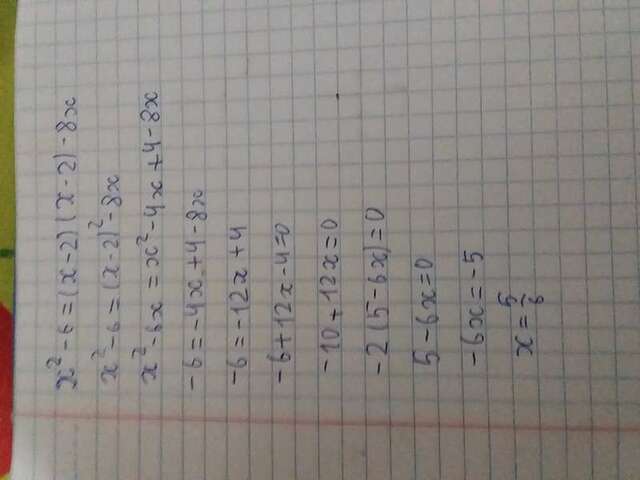 x² - 6 = (x - 2) (x - 2) - 8x
x² - 6 = (x - 2)² - 8x
x² - 6x = x² - 4x + 4 - 8x
- 6 = - 4x + 4 - 8x
- 6 = - 12x + 4
- 6 + 12x - 4 = 0
- 10 + 12x = 0
- 2 (5 - 6x) = 0
5 - 6x = 0
- 6x = - 5
x = 5/6